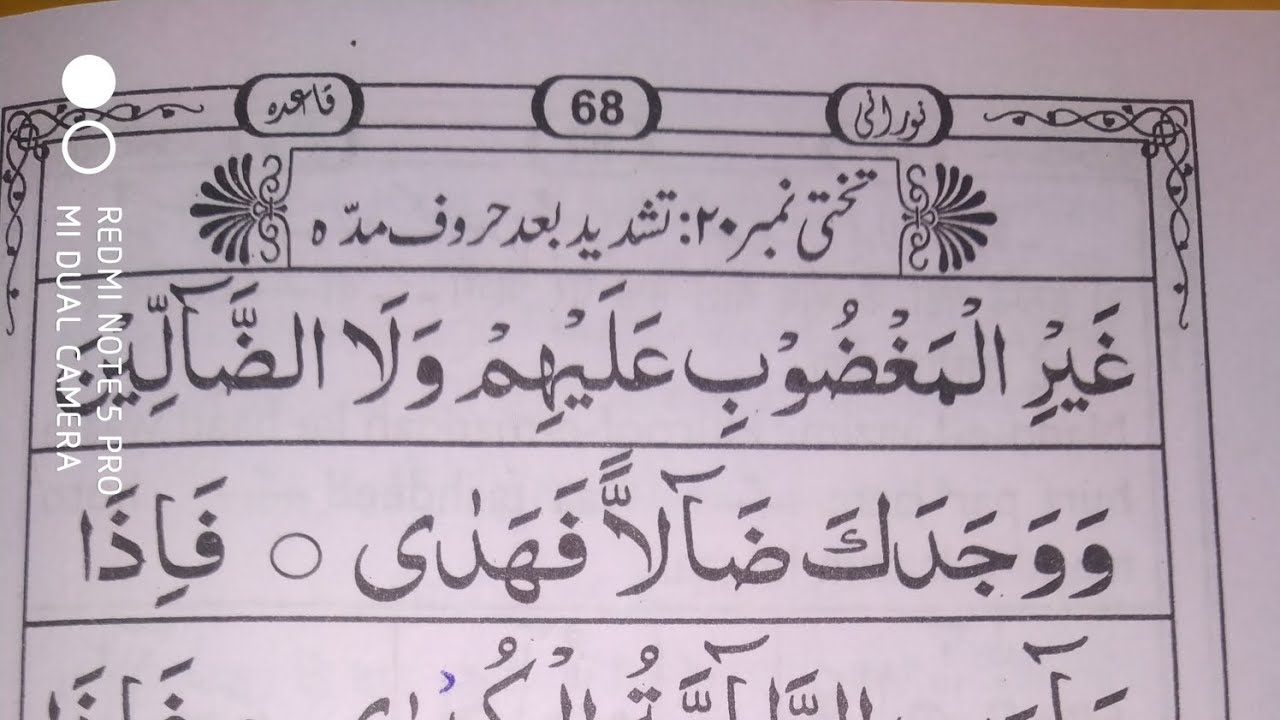 نورانی 68 قاعدہ
تختی نمبر ۲۰: تشدید بعد حروف مدّہ
غَيْرِ الْمَغْضُوْبِ عَلَيْهِمْ وَلَا الضَّآلِّيْنَ
وَوَجَدَكَ ضَآلًّا فَهَدٰى ○ فَاِذَا
REDMI NOTE 5 PRO
MI DUAL CAMERA